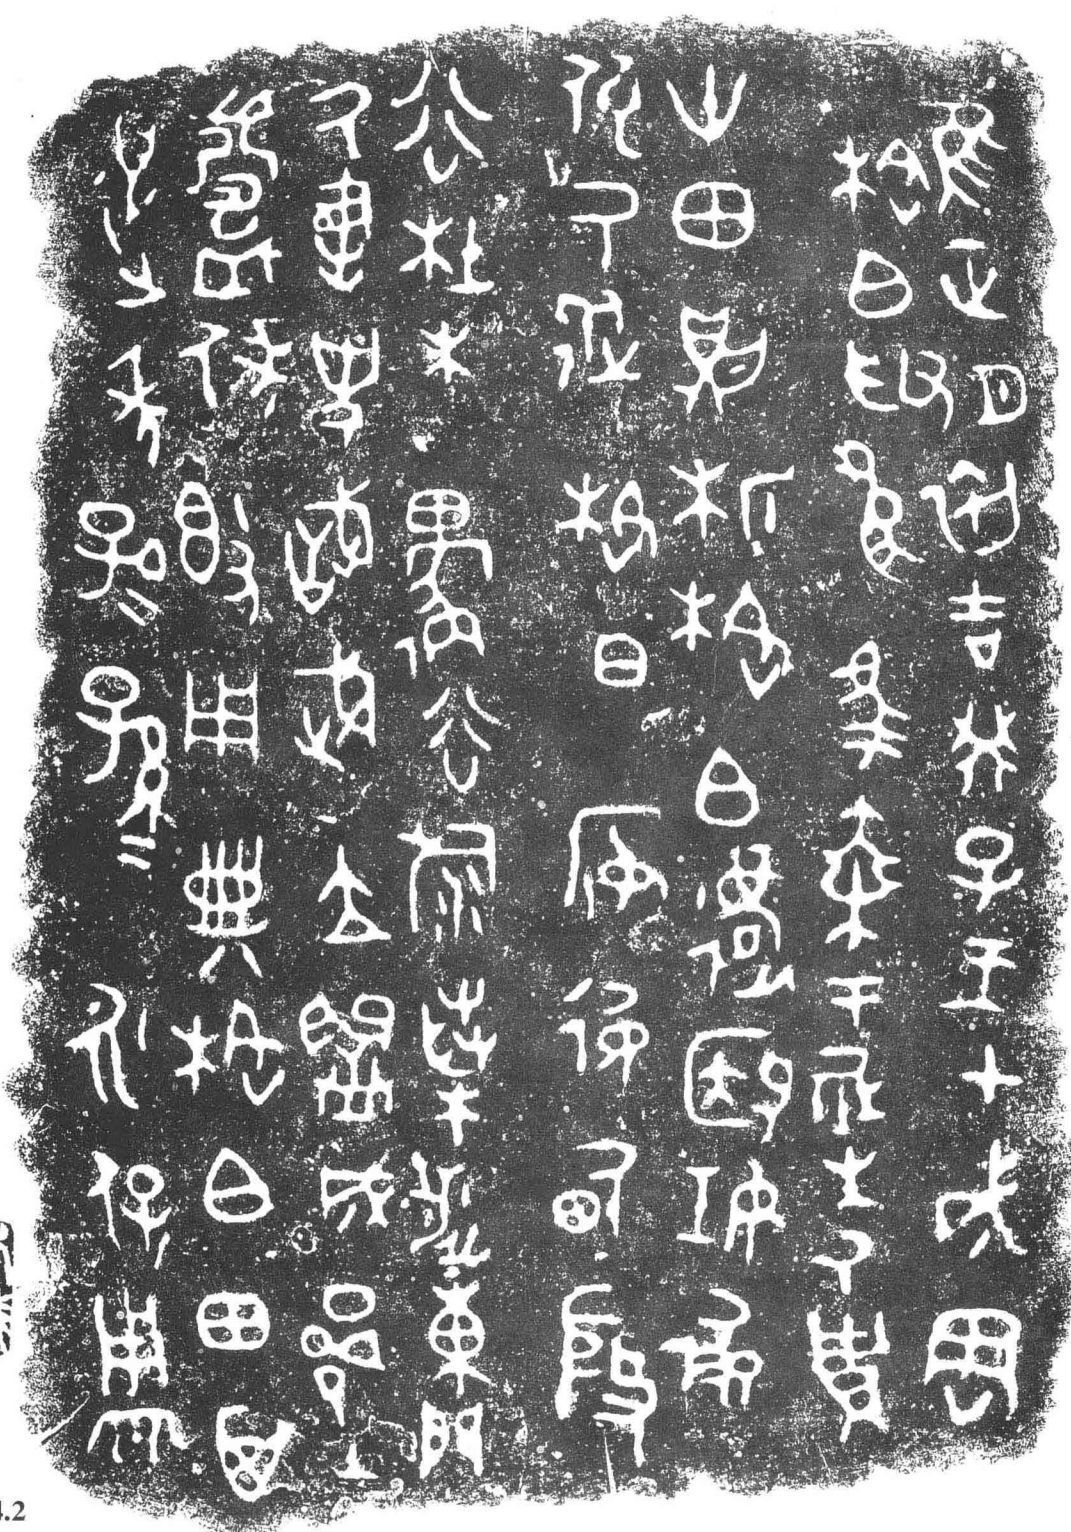 隹正月初吉癸子王才成周
格白取良馬乘于倗生厥貯
卅田則析格白殹妊彶
仡厥從格白安彶甸殷
谷杜木邍谷旅桑涉東門
厥書史戠武立成壨
鑄保簋用典格白田其
萬年子=孫=永保用